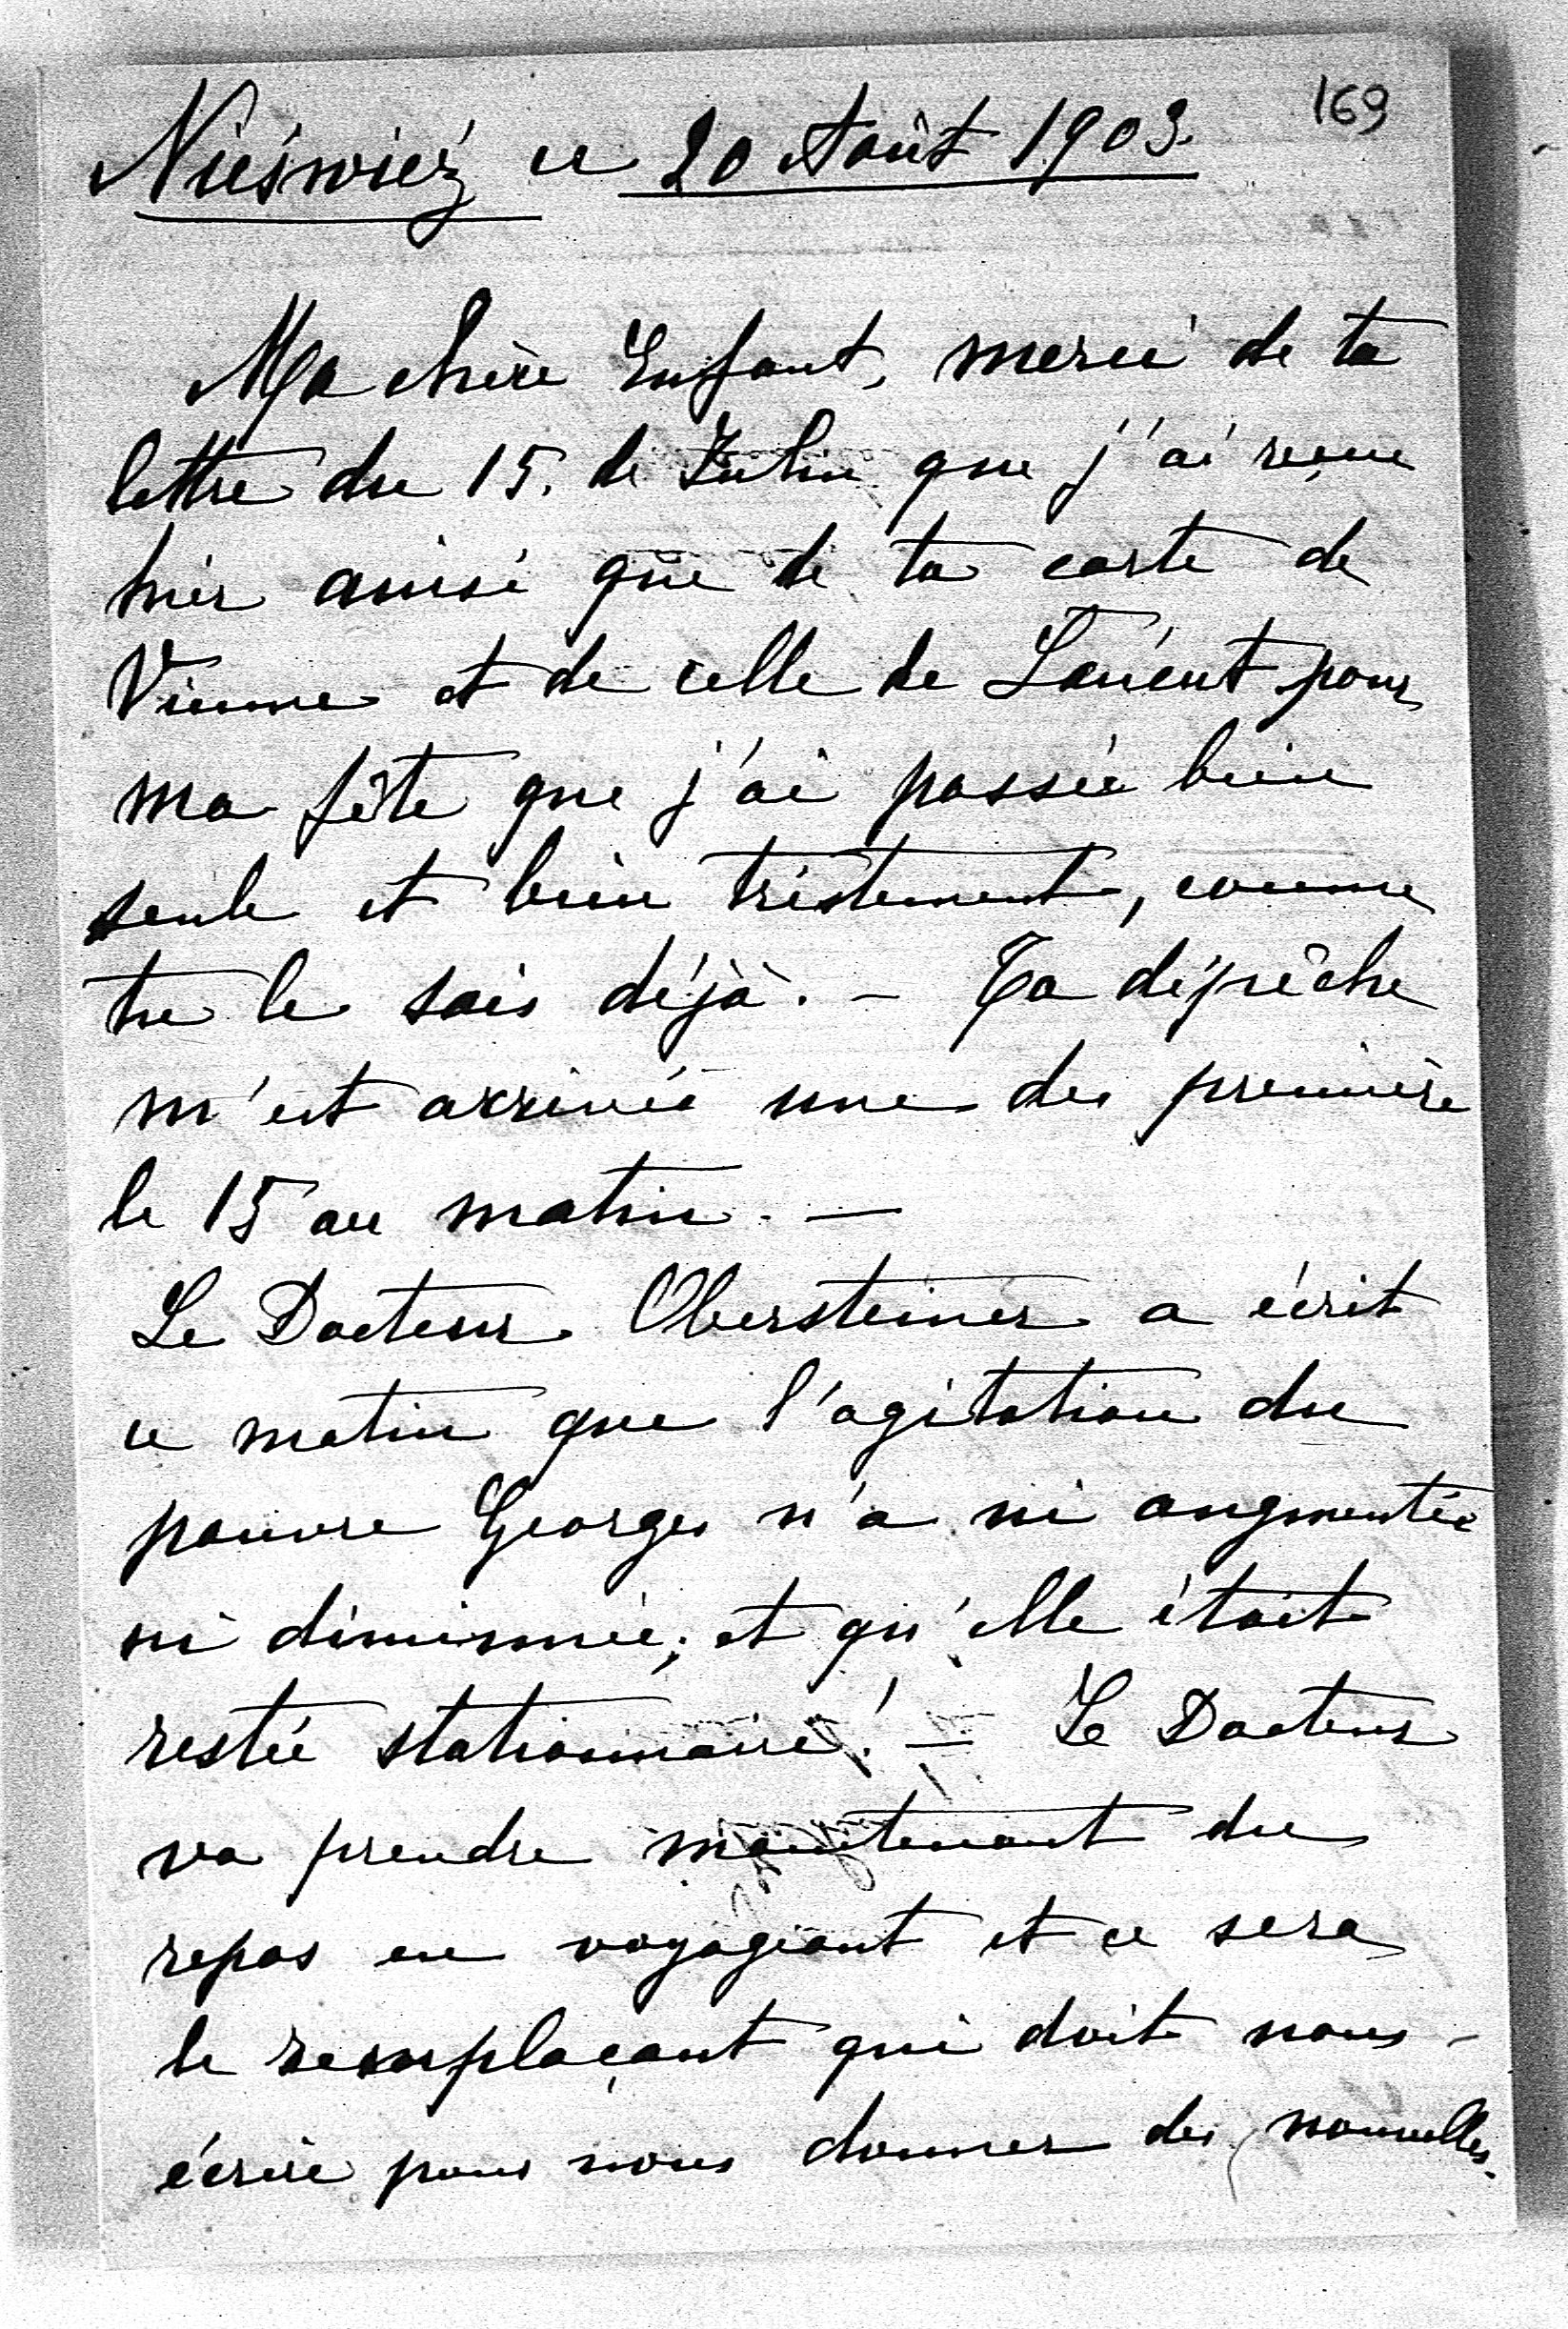 169
Nieśwież ce 20 Août 1903.
Ma chère Enfant, merci de ta
lettre du 15. de que j'ai reçue
hier ainsi que de ta carte de
Vienne et de celle de pour
ma fête que j'ai passée bien
seule et bien tristement, comme
tu le sais déjà. – Ta dépêche
m'est arrivée une des première
le 15 au matin. –
Le Docteur Obersteiner a écrit
ce matin que l'agitation du
pauvre Georges n'a ni augmentée
ni diminuée; et qu'elle était
restée stationnaire! – Le Docteur
va prendre maintenant du
repos en voyageant et ce sera
le remplaçant qui doit nous –
écrire pour nous donner des nouvelles.